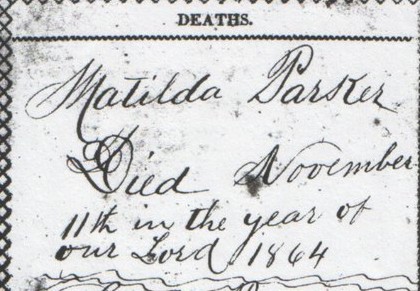 DEATHS.
Matilda Parker
Died November
11th in the year of
our Lord 1864